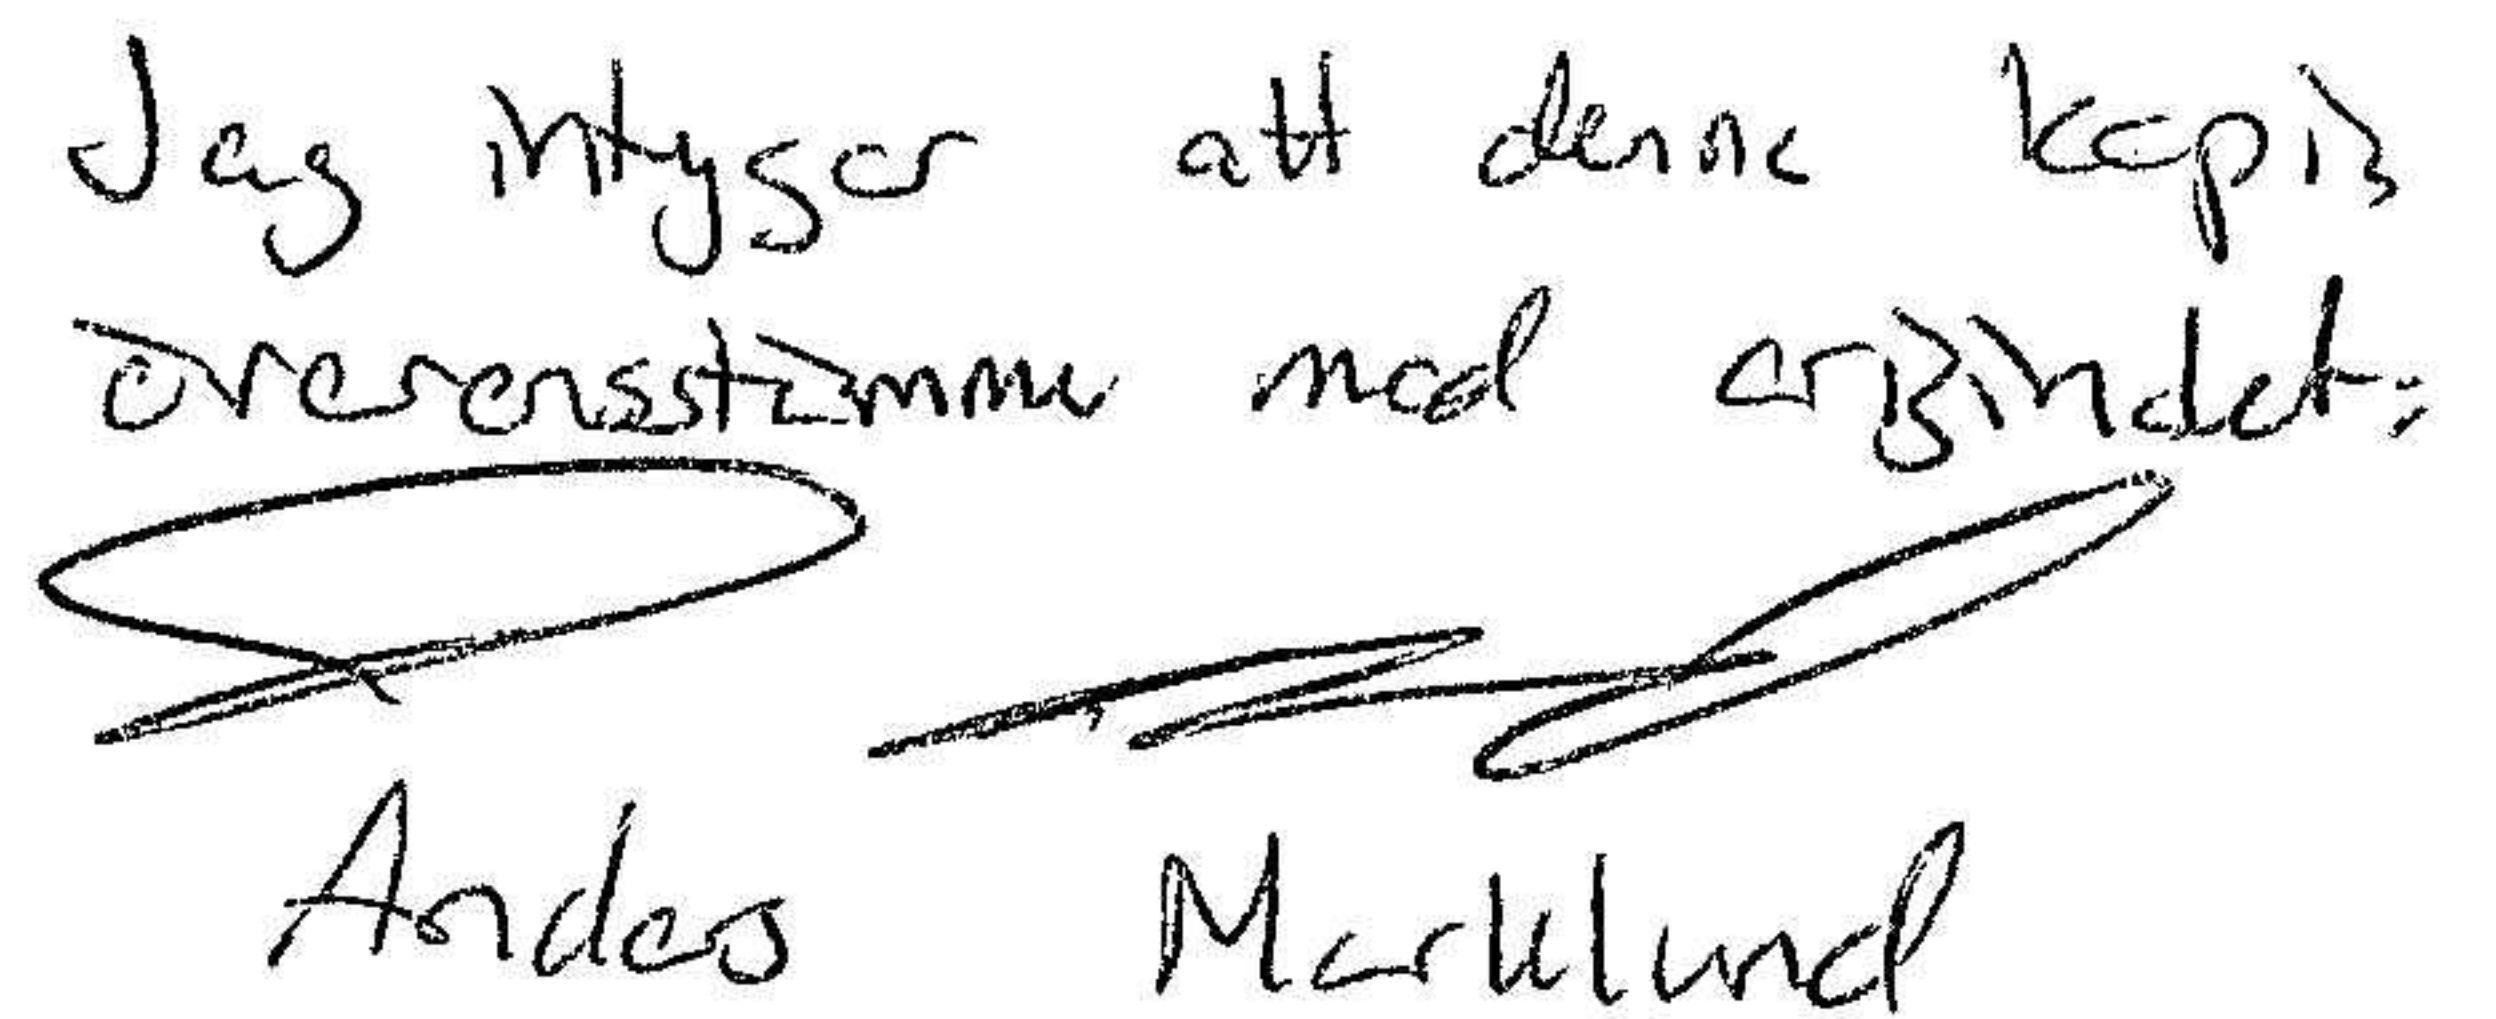 Jag intygar att denna kopia
överensstämmer med orginalet:
Anders Marklund